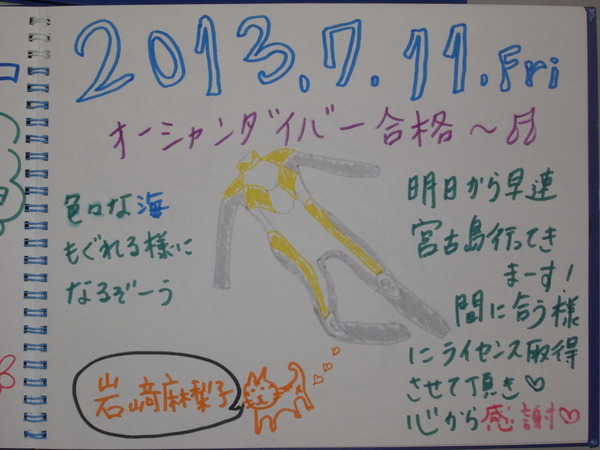 2013.7.11.Fri
オーシャンダイバー合格～♫
色々な海
もぐれる様に
なるぞーう
明日から早連
宮古島行ってき
まーす!
間に合う様
にライセンス取得
させて頂き♡
心から感謝♡
岩崎麻梨子